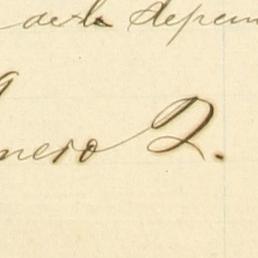 de la depen
nero 2.